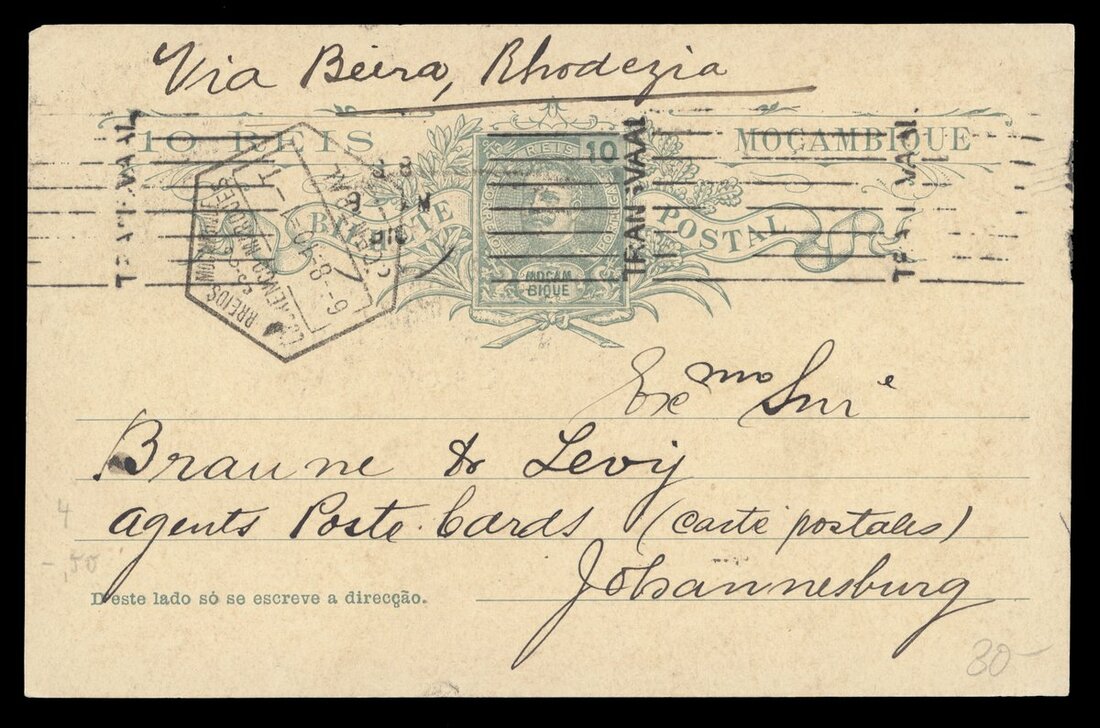 Via Beira, Rhodezia
10 REIS
MOÇAMBIQUE
REIS 10
BILHETE
POSTAL
MOÇAM
BIQUE
TRANSVAAL
TRANSVAAL
TRANSVAAL
9 AM
1910
CORREIOS
Exmo Snr
Braune & Levij
Agents Poste Cards (carte postales)
Johannesburg
D'este lado só se escreve a direcção.
4
-,50
30-